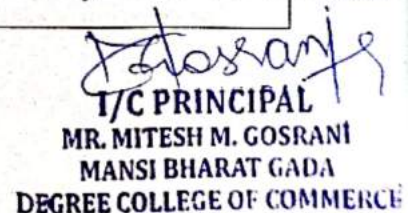 Gosrani
I/C PRINCIPAL
MR. MITESH M. GOSRANI
MANSI BHARAT GADA
DEGREE COLLEGE OF COMMERCE